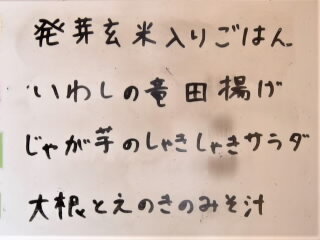 発芽玄米入りごはん
いわしの竜田揚げ
じゃが芋のしゃきしゃきサラダ
大根とえのきのみそ汁